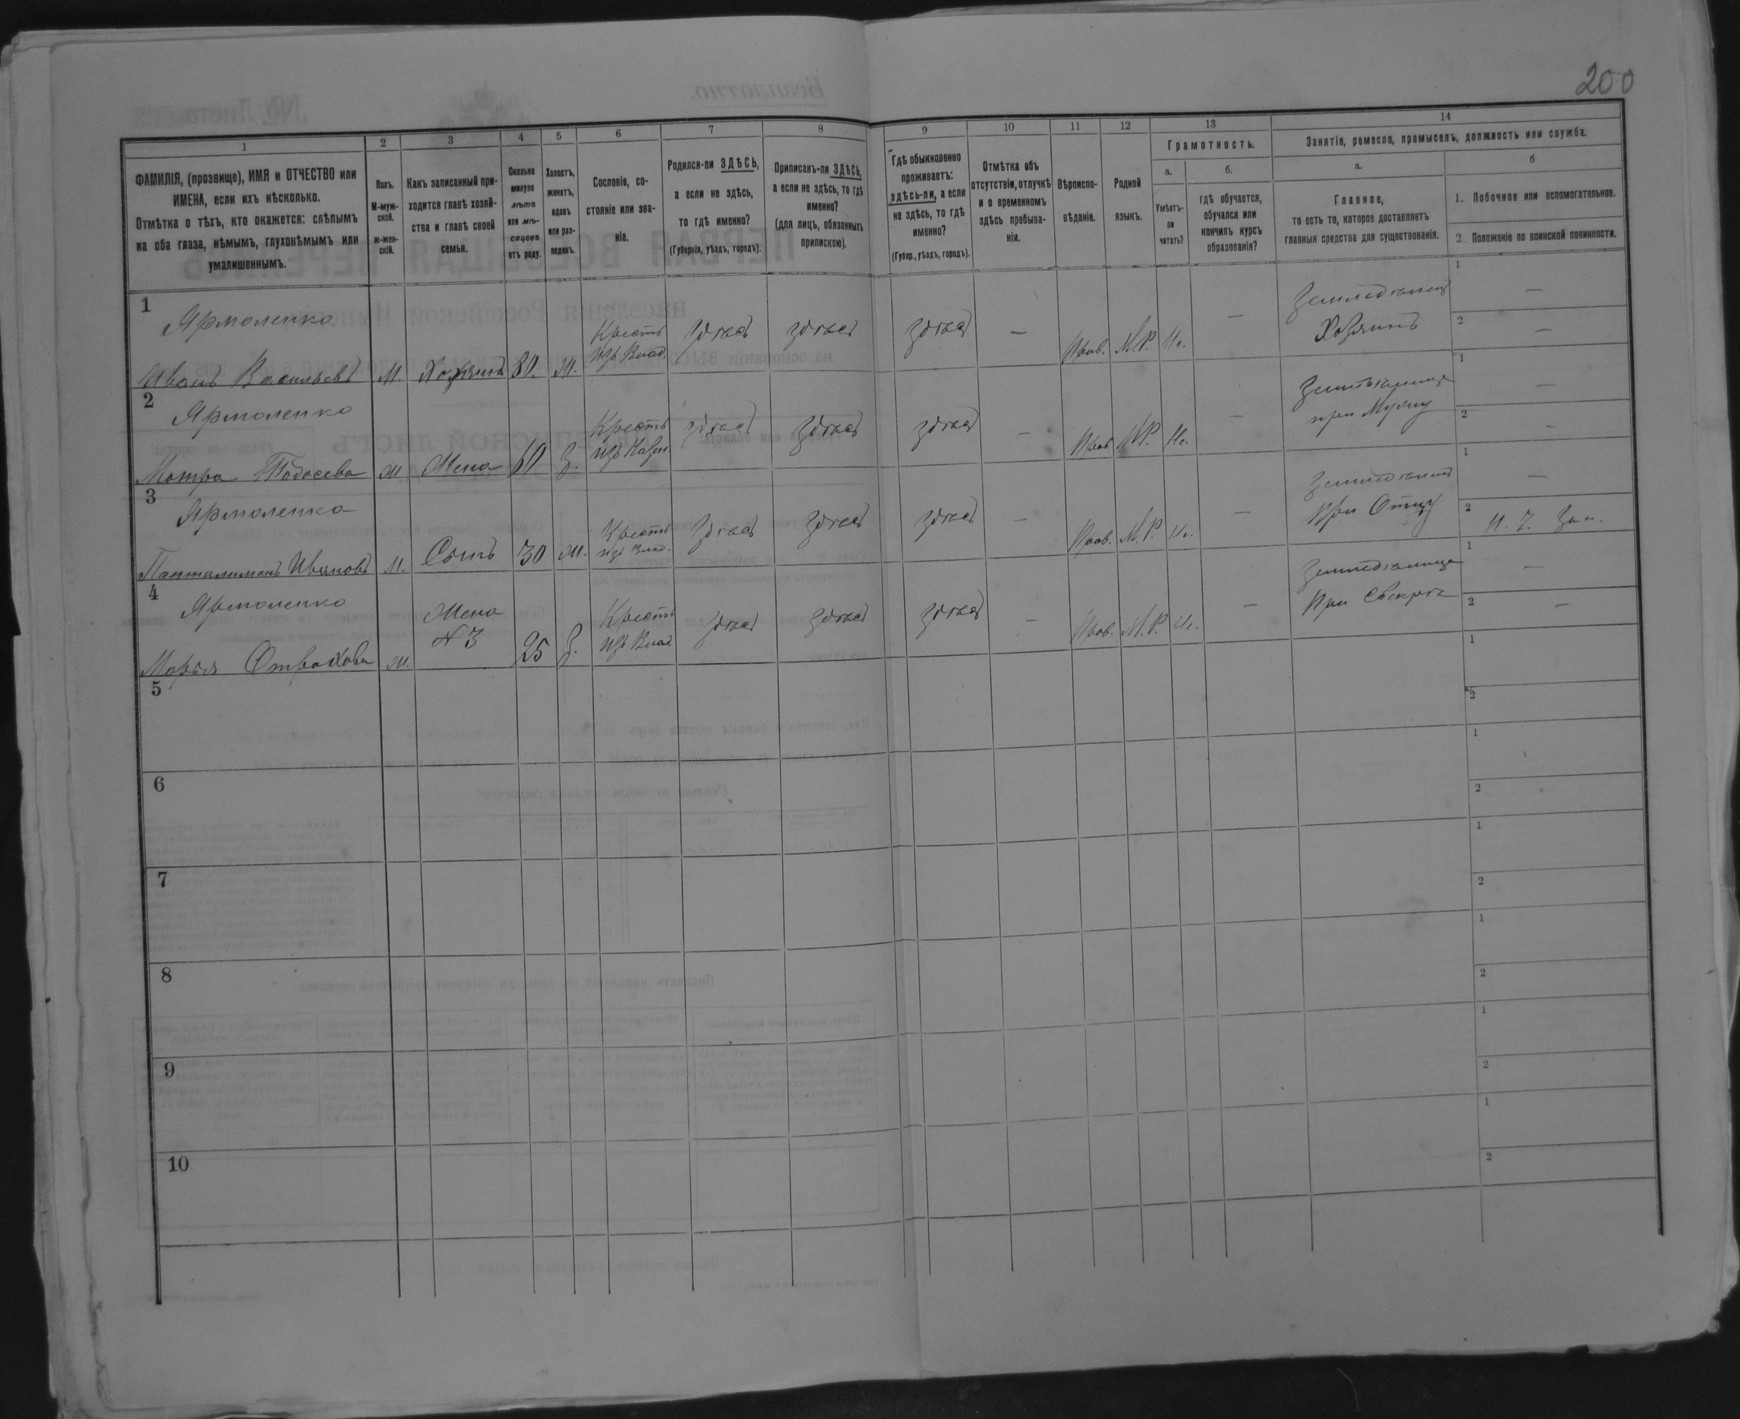 200
1
ФАМИЛІЯ, (прозвище), ИМЯ и ОТЧЕСТВО или
ИМЕНА, если ихъ нѣсколько.
Отмѣтка о тѣхъ, кто окажется: слѣпымъ
на оба глаза, нѣмымъ, глухонѣмымъ или
умалишеннымъ.
2
Полъ.
М-муж-
ской.
ж-жен-
скій.
3
Какъ записанный при-
ходится главѣ хозяй-
ства и главѣ своей
семьи.
4
Сколько
минуло
лѣтъ
или мѣ-
сяцевъ
отъ роду.
5
Холостъ,
женатъ,
вдовъ
или раз-
веденъ.
6
Сословіе, со-
стояніе или зва-
ніе.
7
Родился-ли ЗДѢСЬ,
а если не здѣсь,
то гдѣ именно?
(Губернія, уѣздъ, городъ).
8
Приписанъ-ли ЗДѢСЬ,
а если не здѣсь, то гдѣ
именно?
(для лицъ, обязанныхъ
припискою).
9
Гдѣ обыкновенно
проживаетъ:
здѣсь-ли, а если
не здѣсь, то гдѣ
именно?
(Губер., уѣздъ, городъ).
10
Отмѣтка объ
отсутствіи, отлучкѣ
и о временномъ
здѣсь пребыва-
ніи.
11
Вѣроиспо-
вѣданіе.
12
Родной
языкъ.
13
Грамотность.
а.
Умѣетъ-
ли
читать?
б.
гдѣ обучается,
обучался или
кончилъ курсъ
образованія?
14
Занятіе, ремесло, промыселъ, должность или служба.
а.
Главное,
то есть то, которое доставляетъ
главныя средства для существованія.
б
1. Побочное или вспомогательное.
2 Положеніе по воинской повинности.
1
Ярмоленко
Иванъ Васильевъ М. Хозяинъ 80. Ж. Крестъ изъ Влад. здѣсь здѣсь здѣсь — Прав. М.Р. Не. — Земледѣлецъ Хозяинъ
1 —
2 —
2
Ярмоленко
Мотра Тодосева Ж Жена 60 З. Крестъ изъ Казен здѣсь здѣсь здѣсь — Прав М.Р. Не. — при Мужу
1 —
2 —
3
Ярмоленко
Панталимонъ Ивановъ М. Сынъ 30 Ж. Крестъ изъ Влад. здѣсь здѣсь здѣсь — Прав. М.Р. Не. — Земледѣлецъ при Отцу
1 —
2
4
Ярмоленко
Марья ж. Жена N 3 25 З. Крестъ изъ Влад. здѣсь здѣсь здѣсь — Прав. М.Р. Не. — при Свекрѣ
1 —
2 —
5
1
2
6
1
2
7
1
2
8
1
2
9
1
2
10
1
2